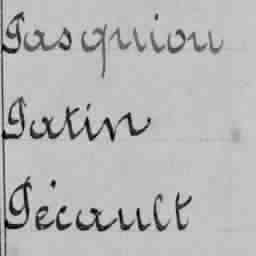 Pasquiou
Patin
Pécault